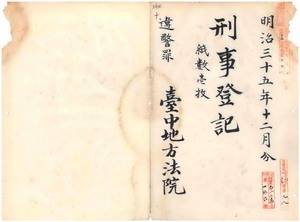 明治三十五年十二月分
刑事登記
紙數壱枚
違警罪
臺中地方法院